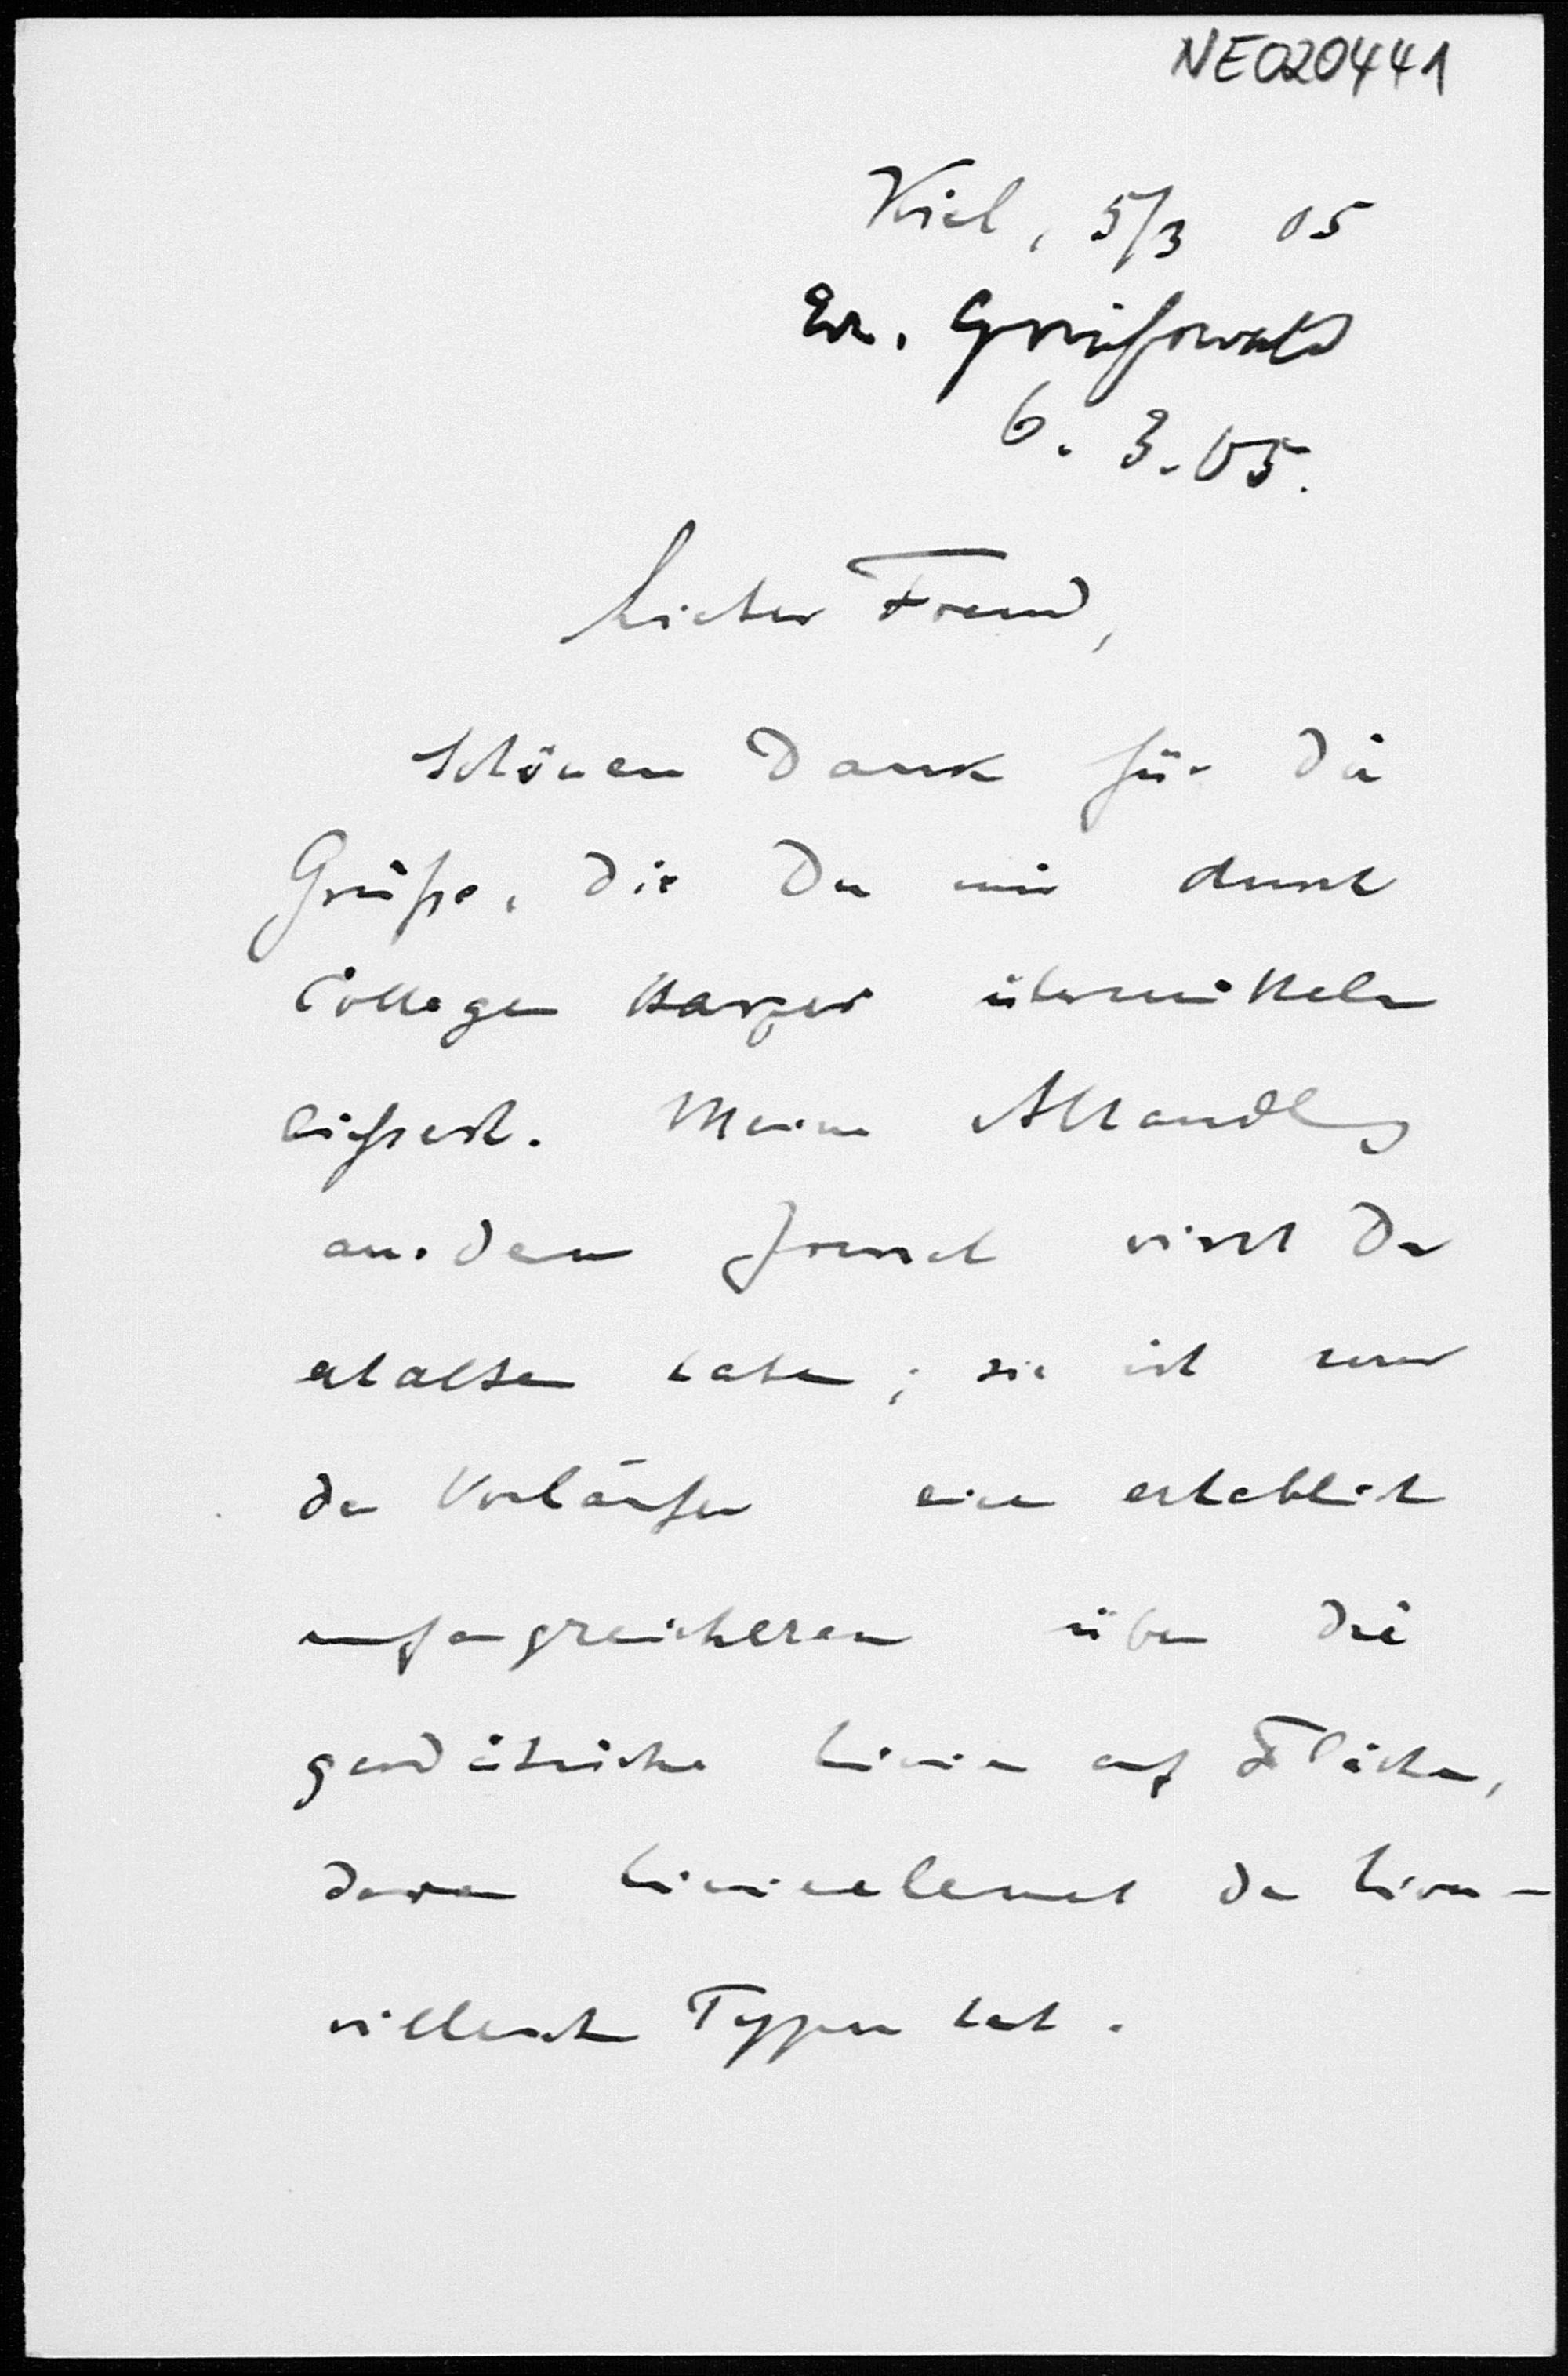 NE020441
Kiel, 5/3 05
Er. Greifswald
6. 3. 05.
Lieber Freund,
schönen Dank für die
Grüße, die Du mir durch
Collegen Harzer übermitteln
ließest. Meine Abhandlg
aus dem wirst Du
erhalten haben; sie ist nur
der Vorläufer einer erheblich
umfangreicheren über die
geodätischen Linien auf Flächen,
deren Linienelement den Liou-
villeschen Typus hat.